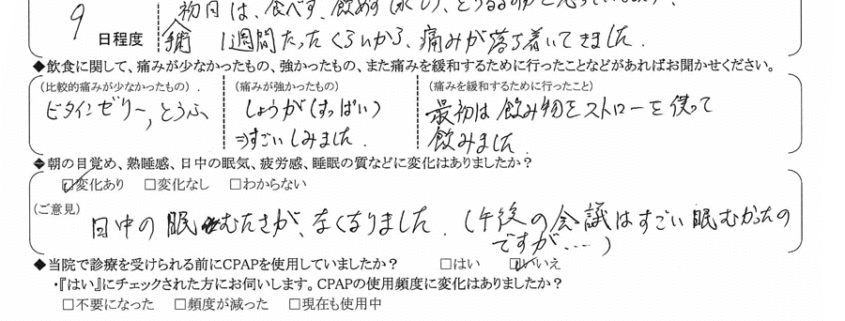 初日は、食べず、飲めず
9
日程度
1週間たったくらいから、痛みが落ち着いてきました.
◆飲食に関して、痛みが少なかったもの、強かったもの、また痛みを緩和するために行ったことなどがあればお聞かせください。
(比較的痛みが少なかったもの) (痛みが強かったもの) (痛みを緩和するために行ったこと)
ビタインゼリー,とうふ しょうが(すっぱい) 最初は飲み物をストローを使って
⇒すごいしみました. 飲みました
◆朝の目覚め、熟睡感、日中の眠気、疲労感、睡眠の質などに変化はありましたか?
☑変化あり □変化なし □わからない
(ご意見)
日中の眠むたさが、なくなりました. (午後の会議はすごい眠むかったの
ですが….)
◆当院で診療を受けられる前にCPAPを使用していましたか? □はい ☑いいえ
・『はい』にチェックされた方にお伺いします。CPAPの使用頻度に変化はありましたか?
□不要になった □頻度が減った □現在も使用中